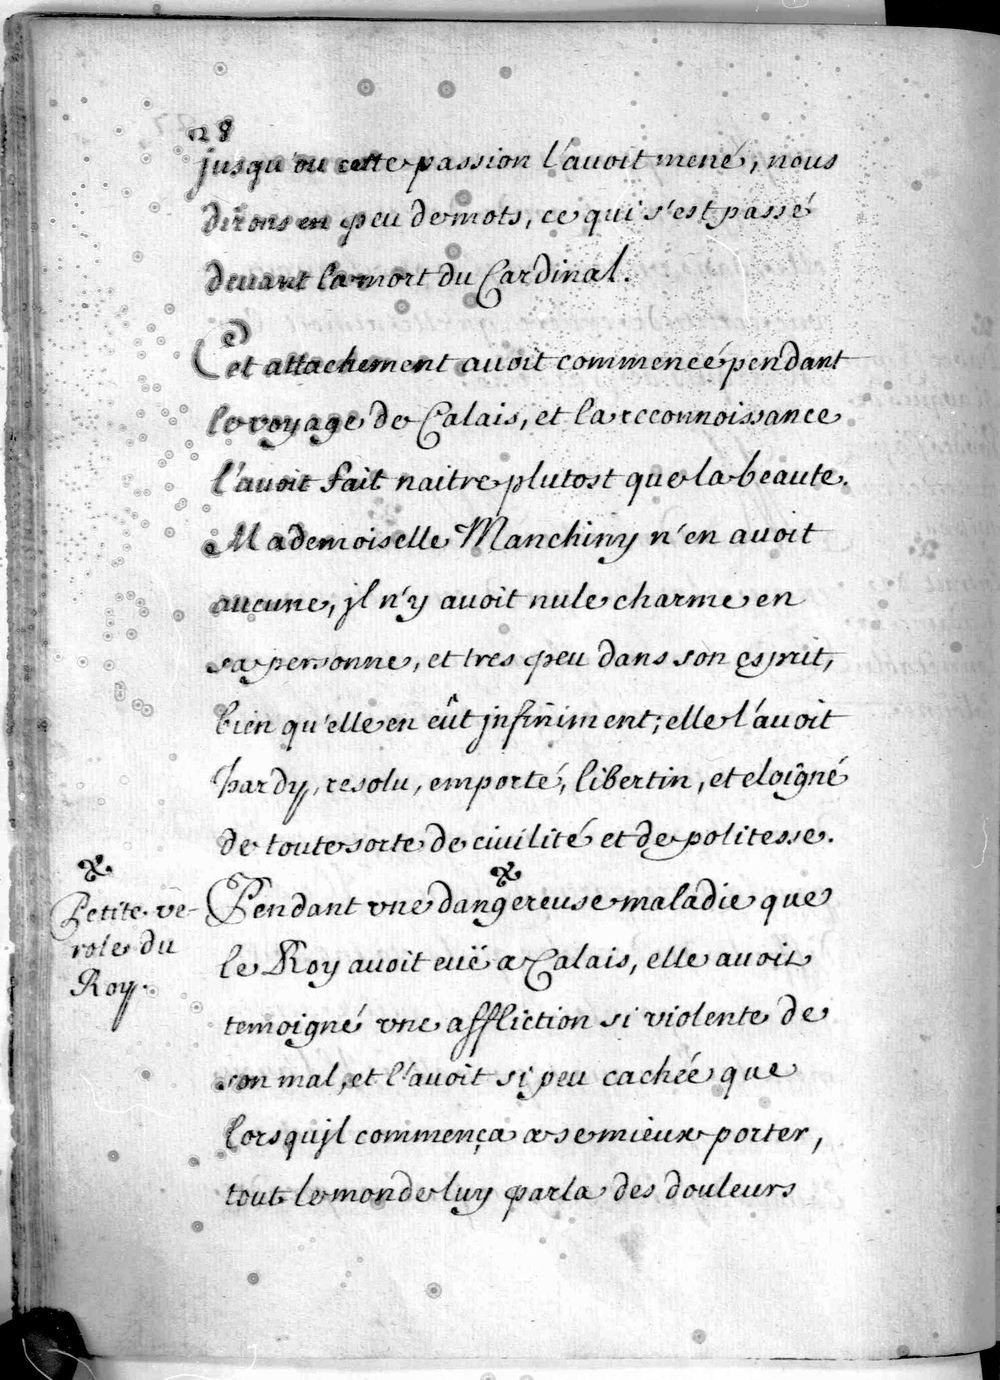 28
jusqu'ou cette passion l'auoit mené, nous
dirons en peu de mots, ce qui s'est passé
deuant la mort du Cardinal.
Cet attachement auoit commencé pendant
le voyage de Calais, et la reconnoissance
l'auoit fait naitre plutost que la beaute.
Mademoiselle Manchiny n'en auoit
aucune, jl n'y auoit nule charme en
sa personne, et tres peu dans son esprit,
bien qu'elle en eût jnfiniment; elle l'auoit
hardy, resolu, emporté, libertin, et eloigné
de toute sorte de ciuilité et de politesse.
Pendant vne dangereuse maladie que
le Roy auoit euë a Calais, elle auoit
temoigné vne affliction si violente de
son mal, et l'auoit si peu cachée que
lorsqujl commença a se mieux porter,
tout le monde luy parla des douleurs
Petite ve-
role du
Roy.